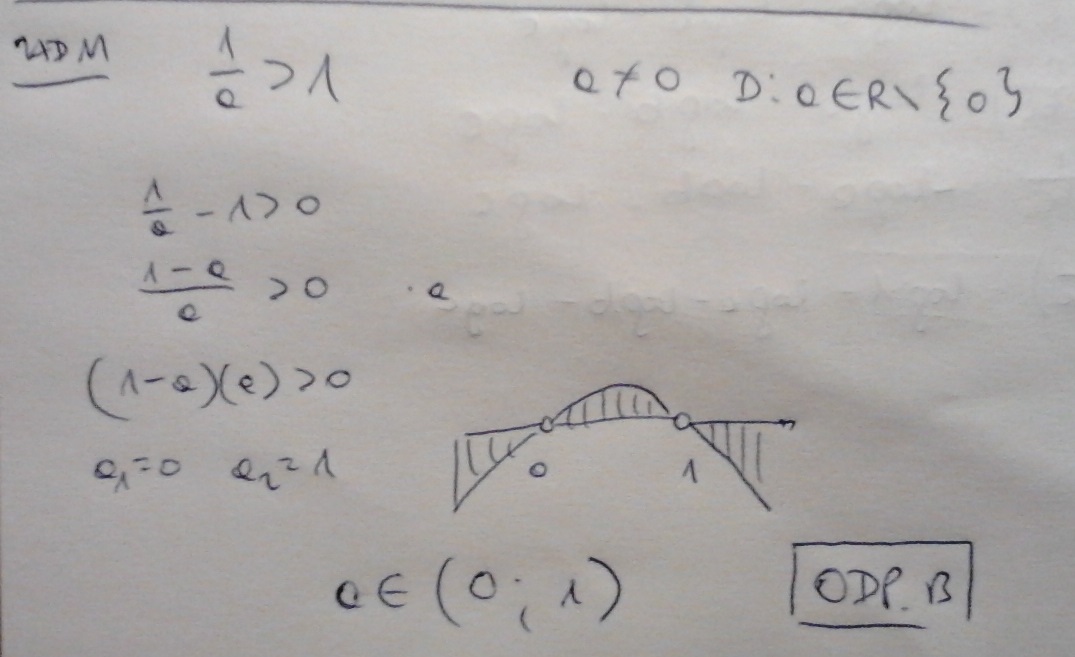 ZAD M 1/a > 1 a ≠ 0 D: a ∈ R \ {0}
1/a - 1 > 0
(1-a)/a > 0 · a
(1-a)(a) > 0
a₁ = 0 a₂ = 1
0 1
a ∈ (0; 1) ODP. B